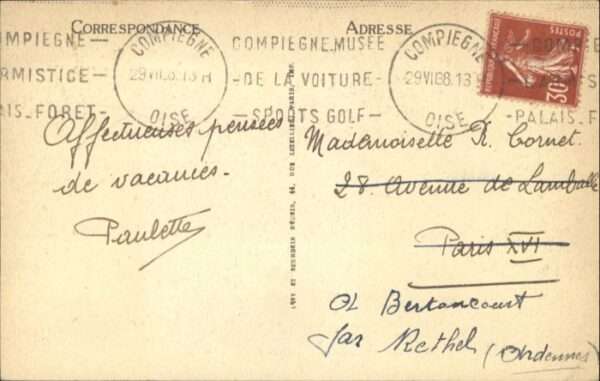 CORRESPONDANCE
ADRESSE
COMPIEGNE
ARMISTICE
PALAIS_FORET
COMPIEGNE
29 VII 8. 13 H
OISE
COMPIEGNE_MUSEE
_DE LA VOITURE_
_SPORTS GOLF_
COMPIEGNE
29 VII 38.13
OISE
POSTES
30
_PALAIS_F
Affectueuses pensées
de vacances.
Paulette
Mademoiselle R. Cornet.
28. Avenue de Lamballe
Paris XVI
Ol Bertoncourt
par Rethel (Ardennes)